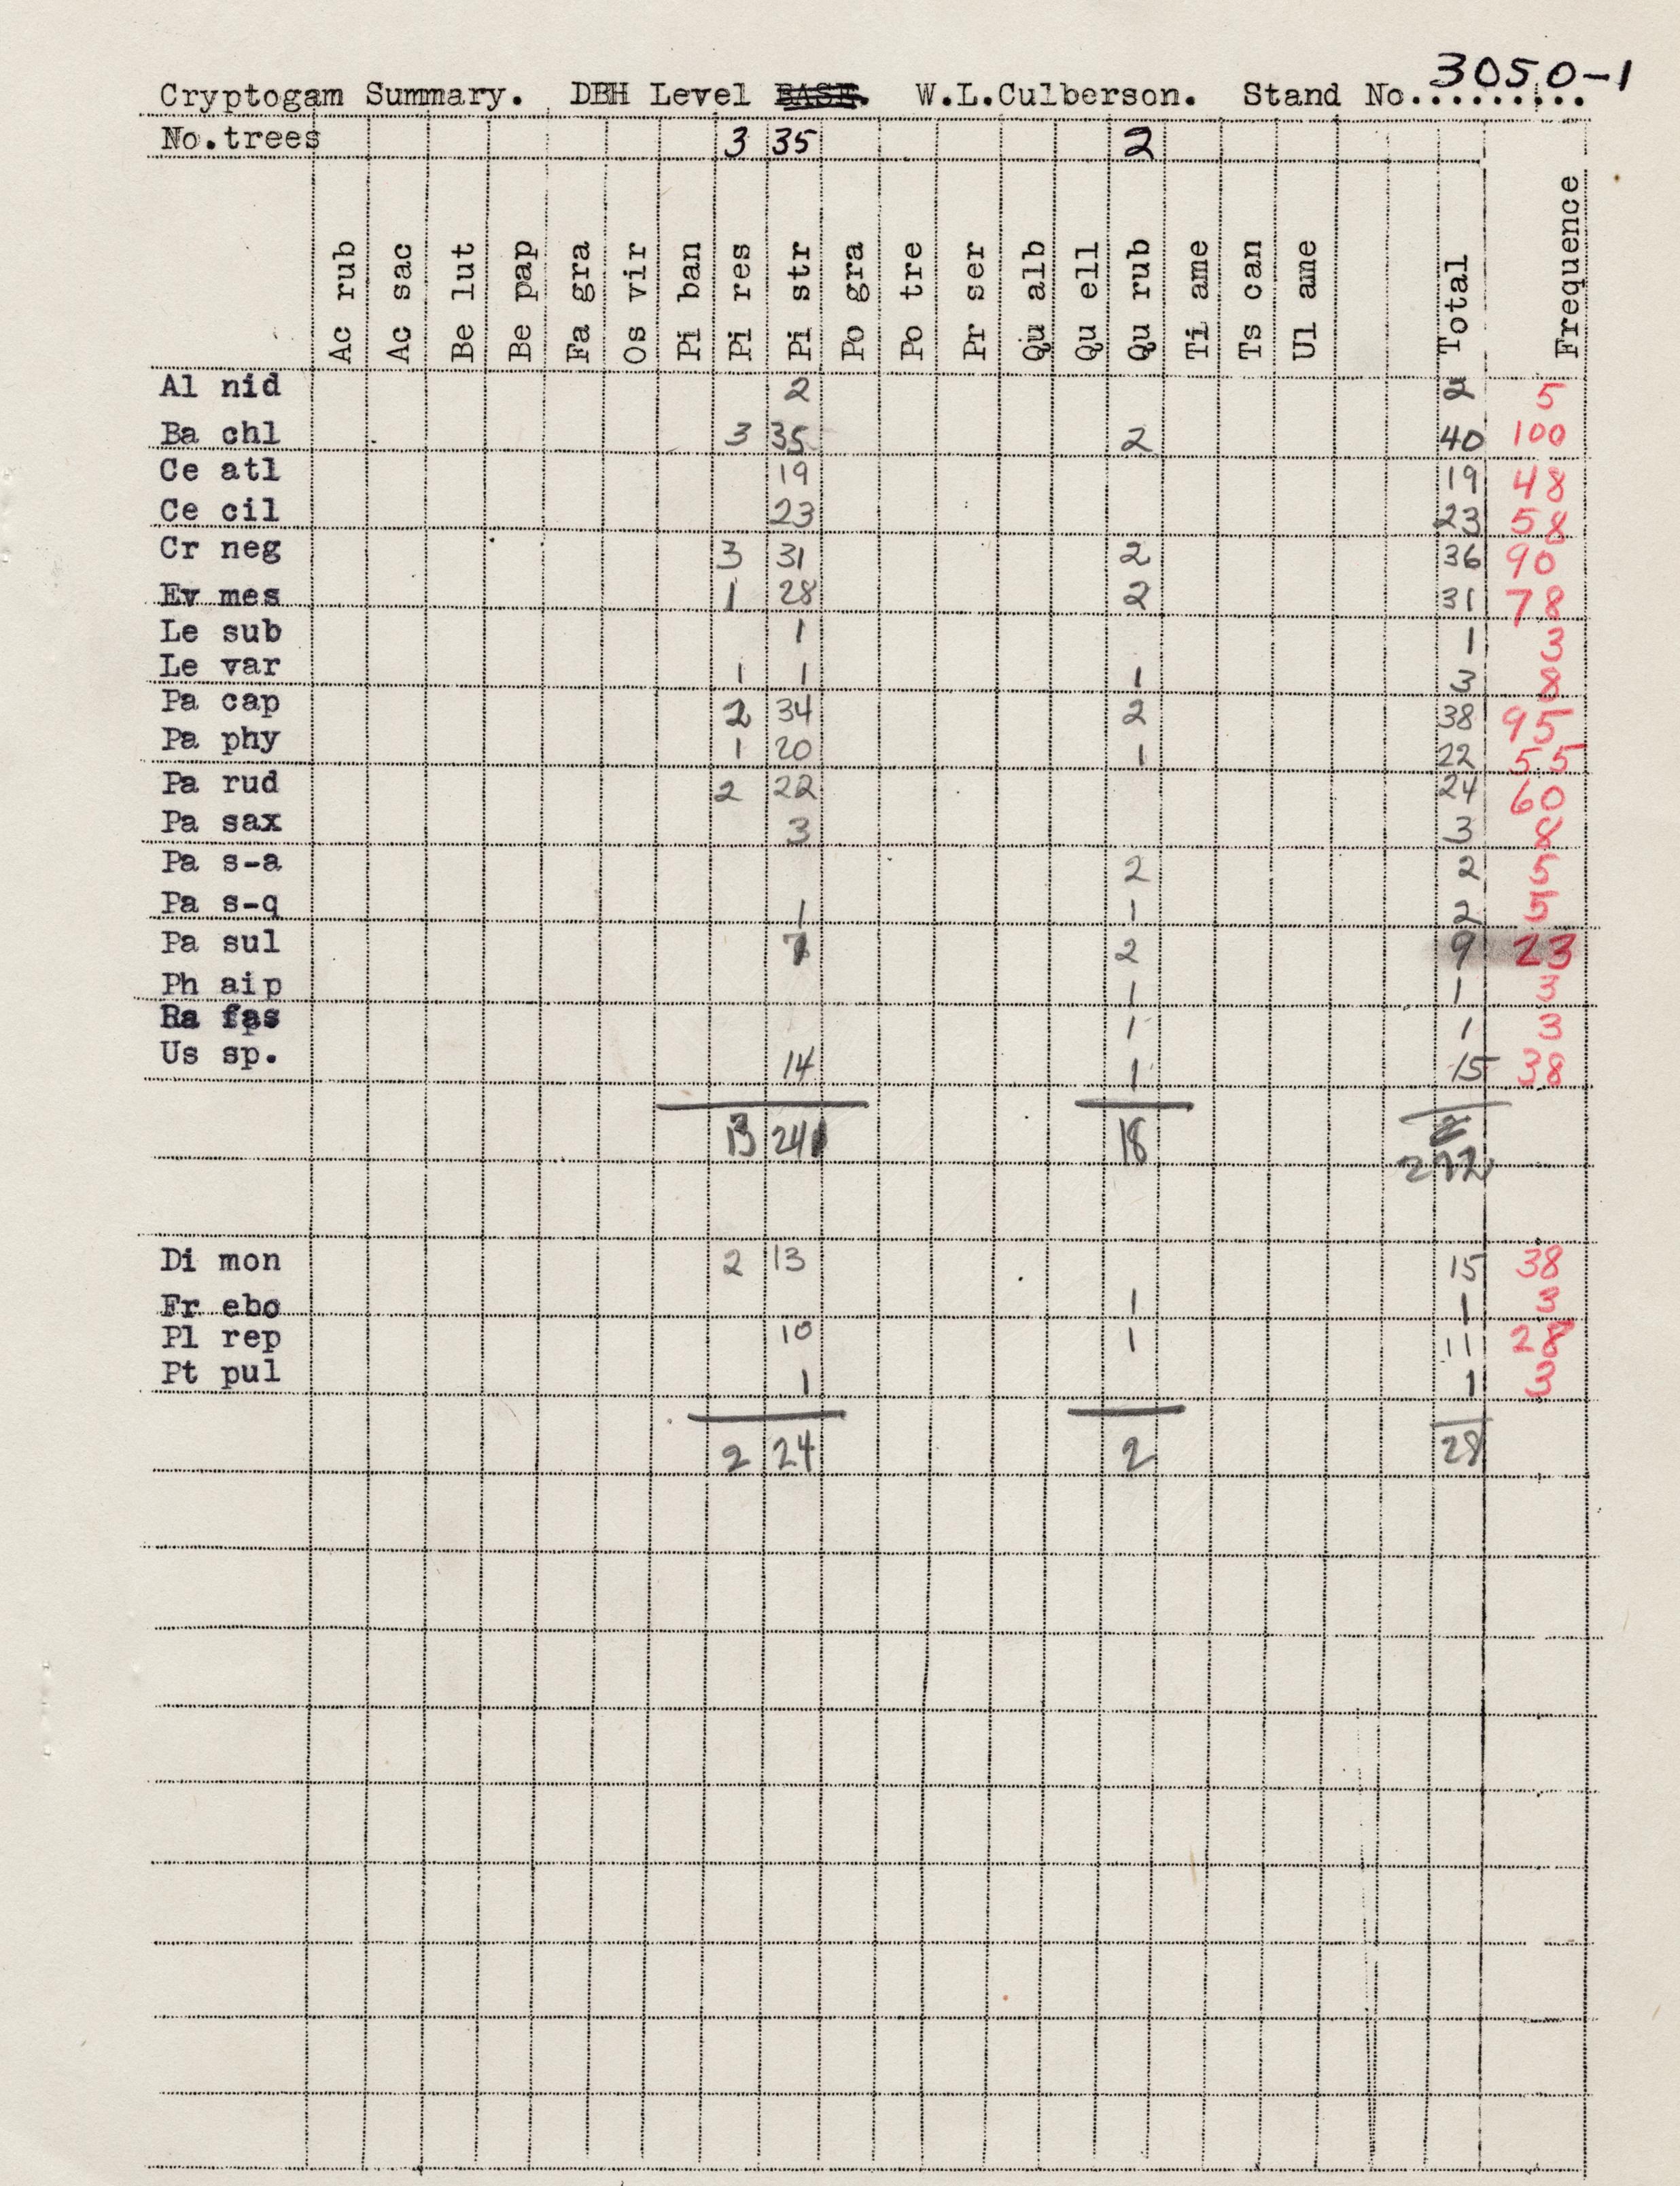 Cryptogam Summary. DBH Level W.L.Culberson. Stand No.......... 3050-1
No.trees 3 35 2
Ac rub Ac sac Be lut Be pap Fa gra Os vir Pi ban Pi res Pi str Po gra Po tre Pr ser Qu alb Qu ell Qu rub Ti ame Ts can Ul ame Total Frequence
Al nid 2 2 5
Ba chl 3 35 2 40 100
Ce atl 19 19 48
Ce cil 23 23 58
Cr neg 3 31 2 36 90
Ev mes 1 28 2 31 78
Le sub 1 1 3
Le var 1 1 1 3 8
Pa cap 2 34 2 38 95
Pa phy 1 20 1 22 55
Pa rud 2 22 24 60
Pa sax 3 3 8
Pa s-a 2 2 5
Pa s-q 1 1 2 5
Pa sul 7 2 9 23
Ph aip 1 1 3
Ra fas 1 1 3
Us sp. 14 1 15 38
13 241 18 272
Di mon 2 13 15 38
Fr ebo 1 1 3
Pl rep 10 1 11 28
Pt pul 1 1 3
2 24 2 28